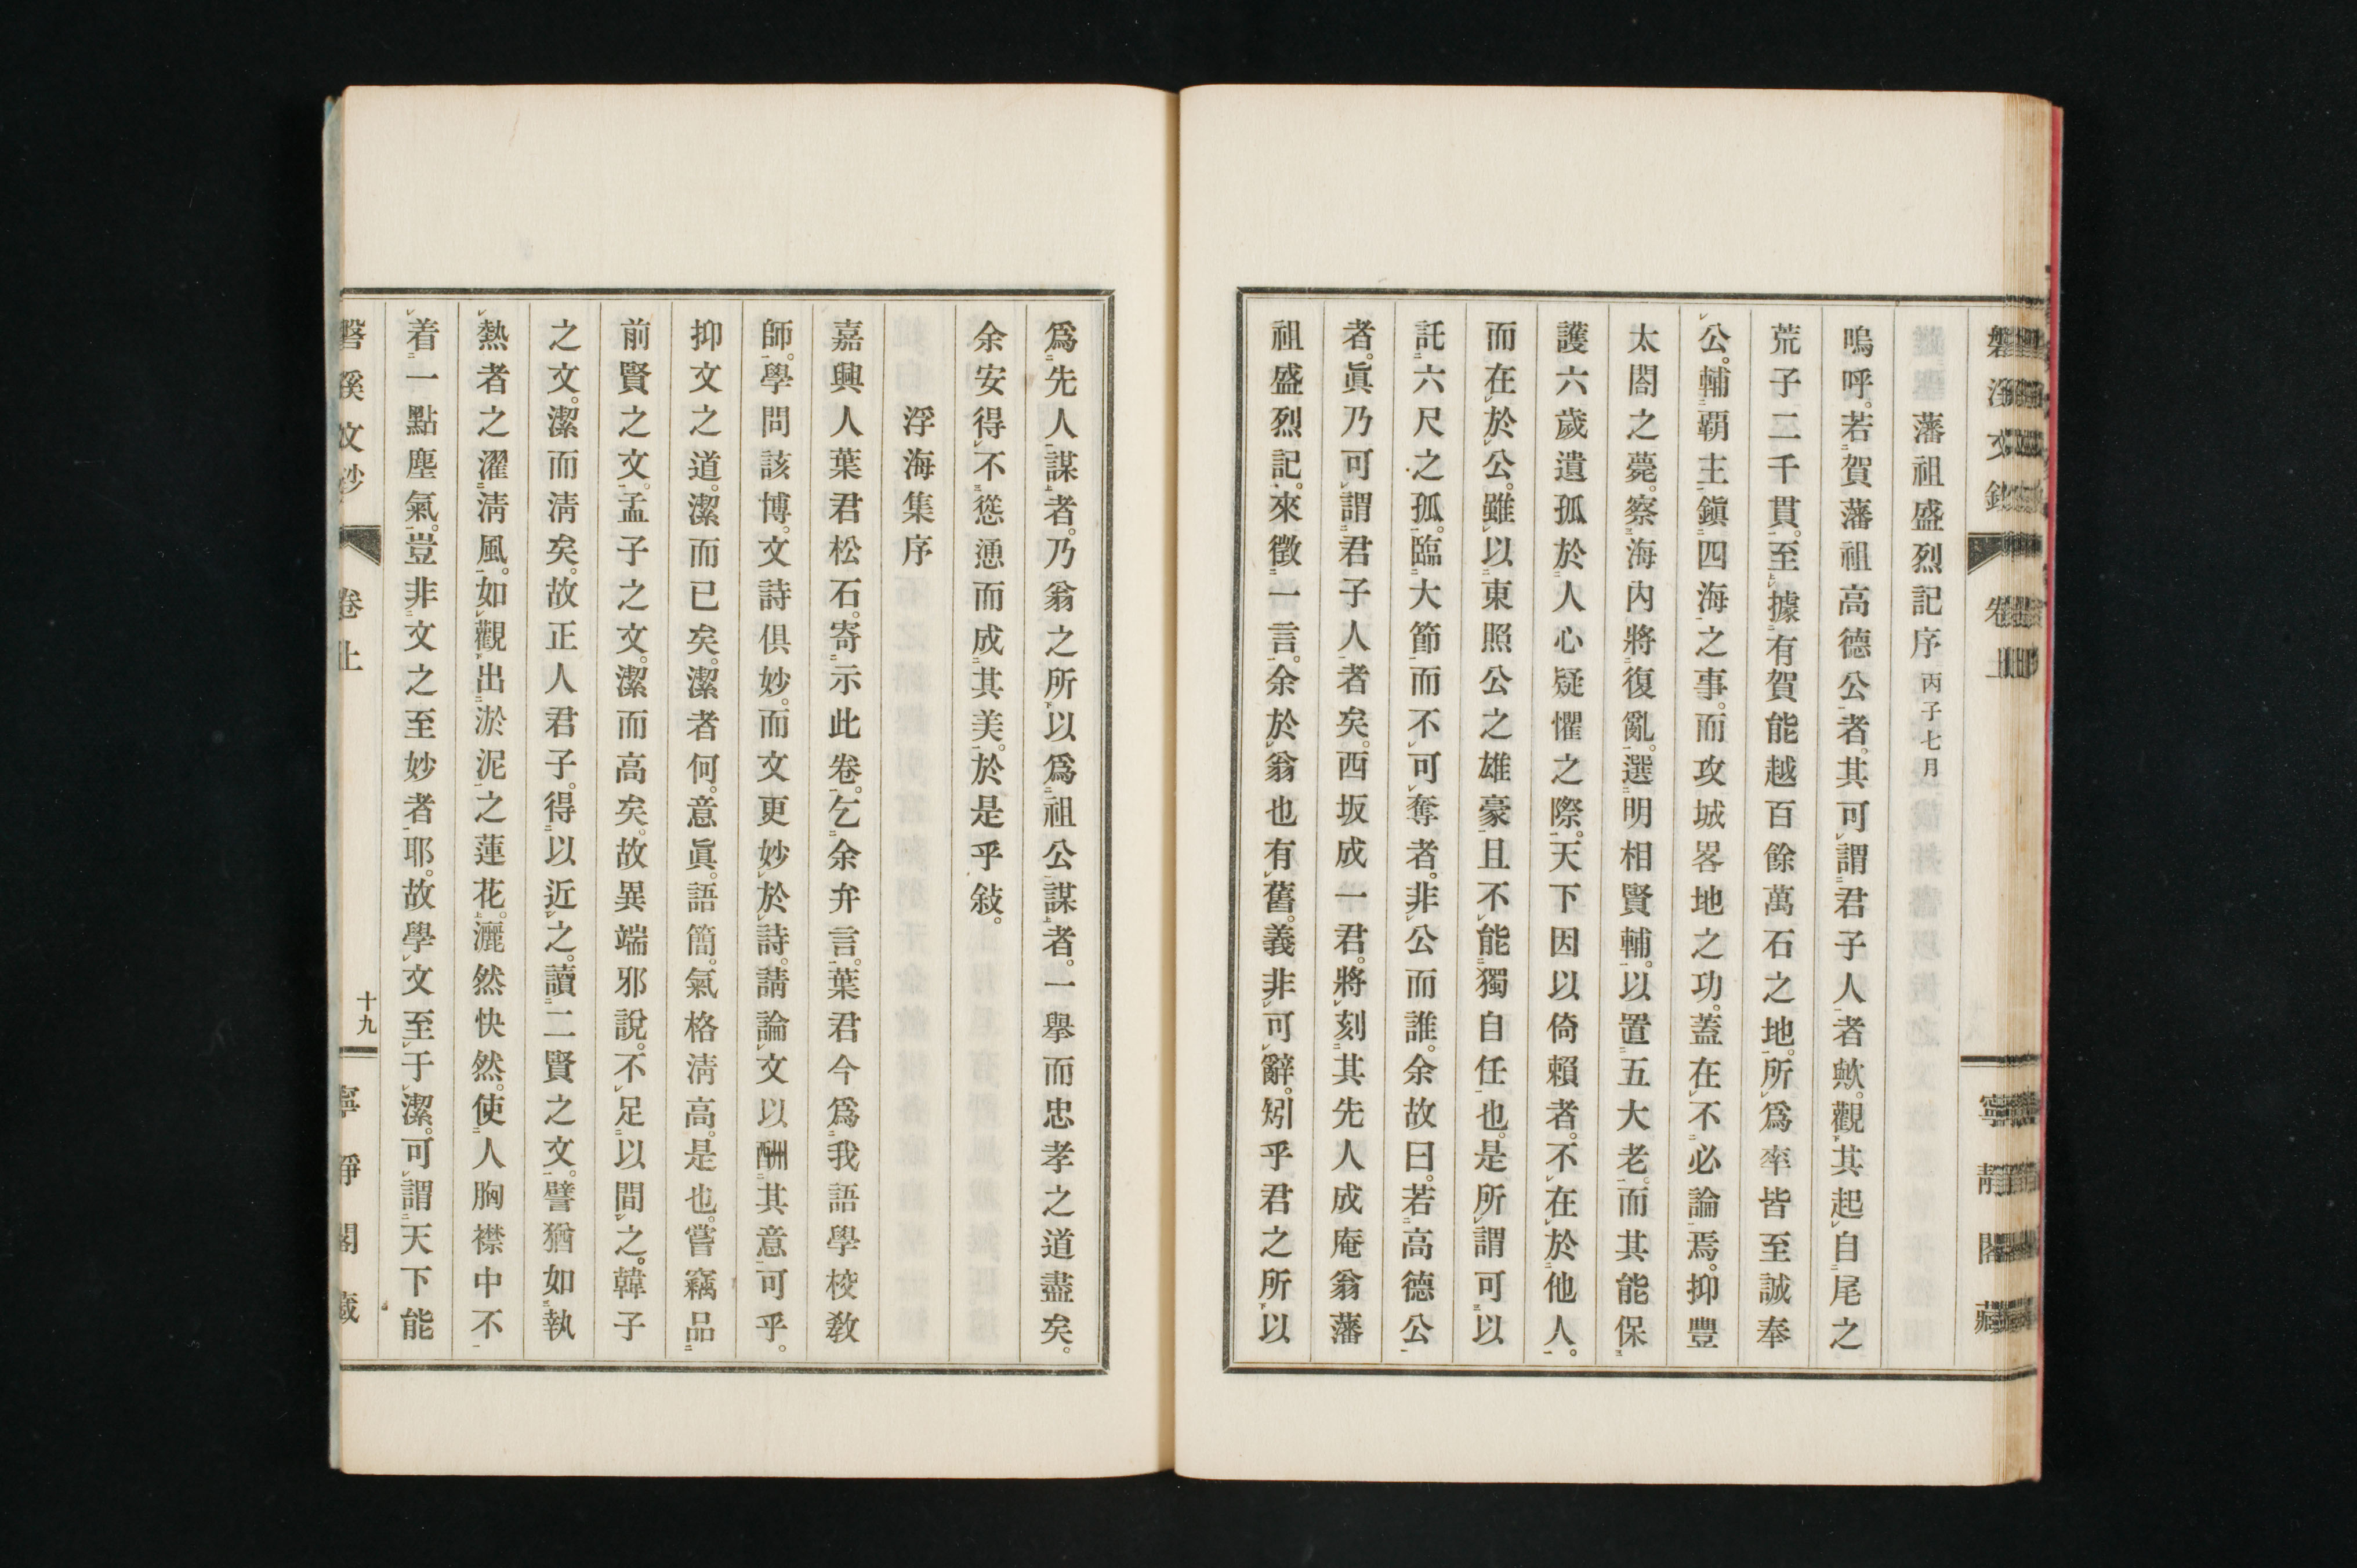 藩祖盛烈記序 丙子七月
嗚呼。若賀藩祖高德公者。其可謂君子人者歟。觀其起自尾之
荒子二千貫。至據有賀能越百餘萬石之地。所爲率皆至誠奉
公。輔霸主鎭四海之事。而攻城畧地之功。蓋在不必論焉。抑豐
太閤之薨。察海內將復亂。選明相賢輔。以置五大老。而其能保
護六歲遺孤於人心疑懼之際。天下因以倚賴者。不在於他人。
而在於公。雖以東照公之雄豪且不能獨自任也。是所謂可以
託六尺之孤。臨大節而不可奪者。非公而誰。余故曰。若高德公
者。眞乃可謂君子人者矣。西坂成一君。將刻其先人成庵翁藩
祖盛烈記。來徵一言。余於翁也有舊。義非可辭。矧乎君之所以
爲先人謀者。乃翁之所以爲祖公謀者。一擧而忠孝之道盡矣。
余安得不慫慂而成其美。於是乎敍。
浮海集序
嘉興人葉君松石。寄示此卷。乞余弁言。葉君今爲我語學校敎
師。學問該博。文詩俱妙。而文更妙於詩。請論文以酬其意可乎。
抑文之道。潔而已矣。潔者何。意眞。語簡。氣格淸高。是也。嘗竊品
前賢之文。孟子之文。潔而高矣。故異端邪說。不足以間之。韓子
之文。潔而淸矣。故正人君子。得以近之。讀二賢之文。譬猶如執
熱者之濯淸風。如觀出淤泥之蓮花。灑然快然。使人胸襟中不
着一點塵氣。豈非文之至妙者耶。故學文至于潔。可謂天下能
磐溪文鈔 卷上 十九 寧靜閣藏